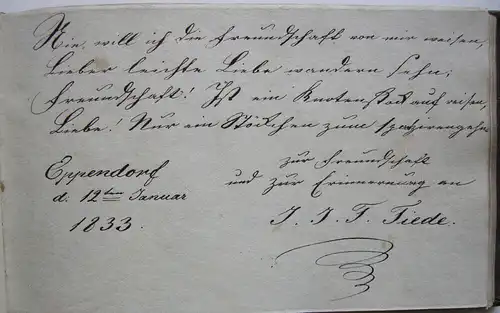 Nie, will ich die Freundschaft von mir weisen,
Lieber leichte Liebe wandern sehn;
Freundschaft! Ist ein Knotenstock auf reisen,
Liebe! Nur ein Stöckchen zum spazirengehn
Eppendorf
d. 12ten Januar
1833.
zur Freundschaft
und zur Erinnerung an
J. J. F. Tiede.